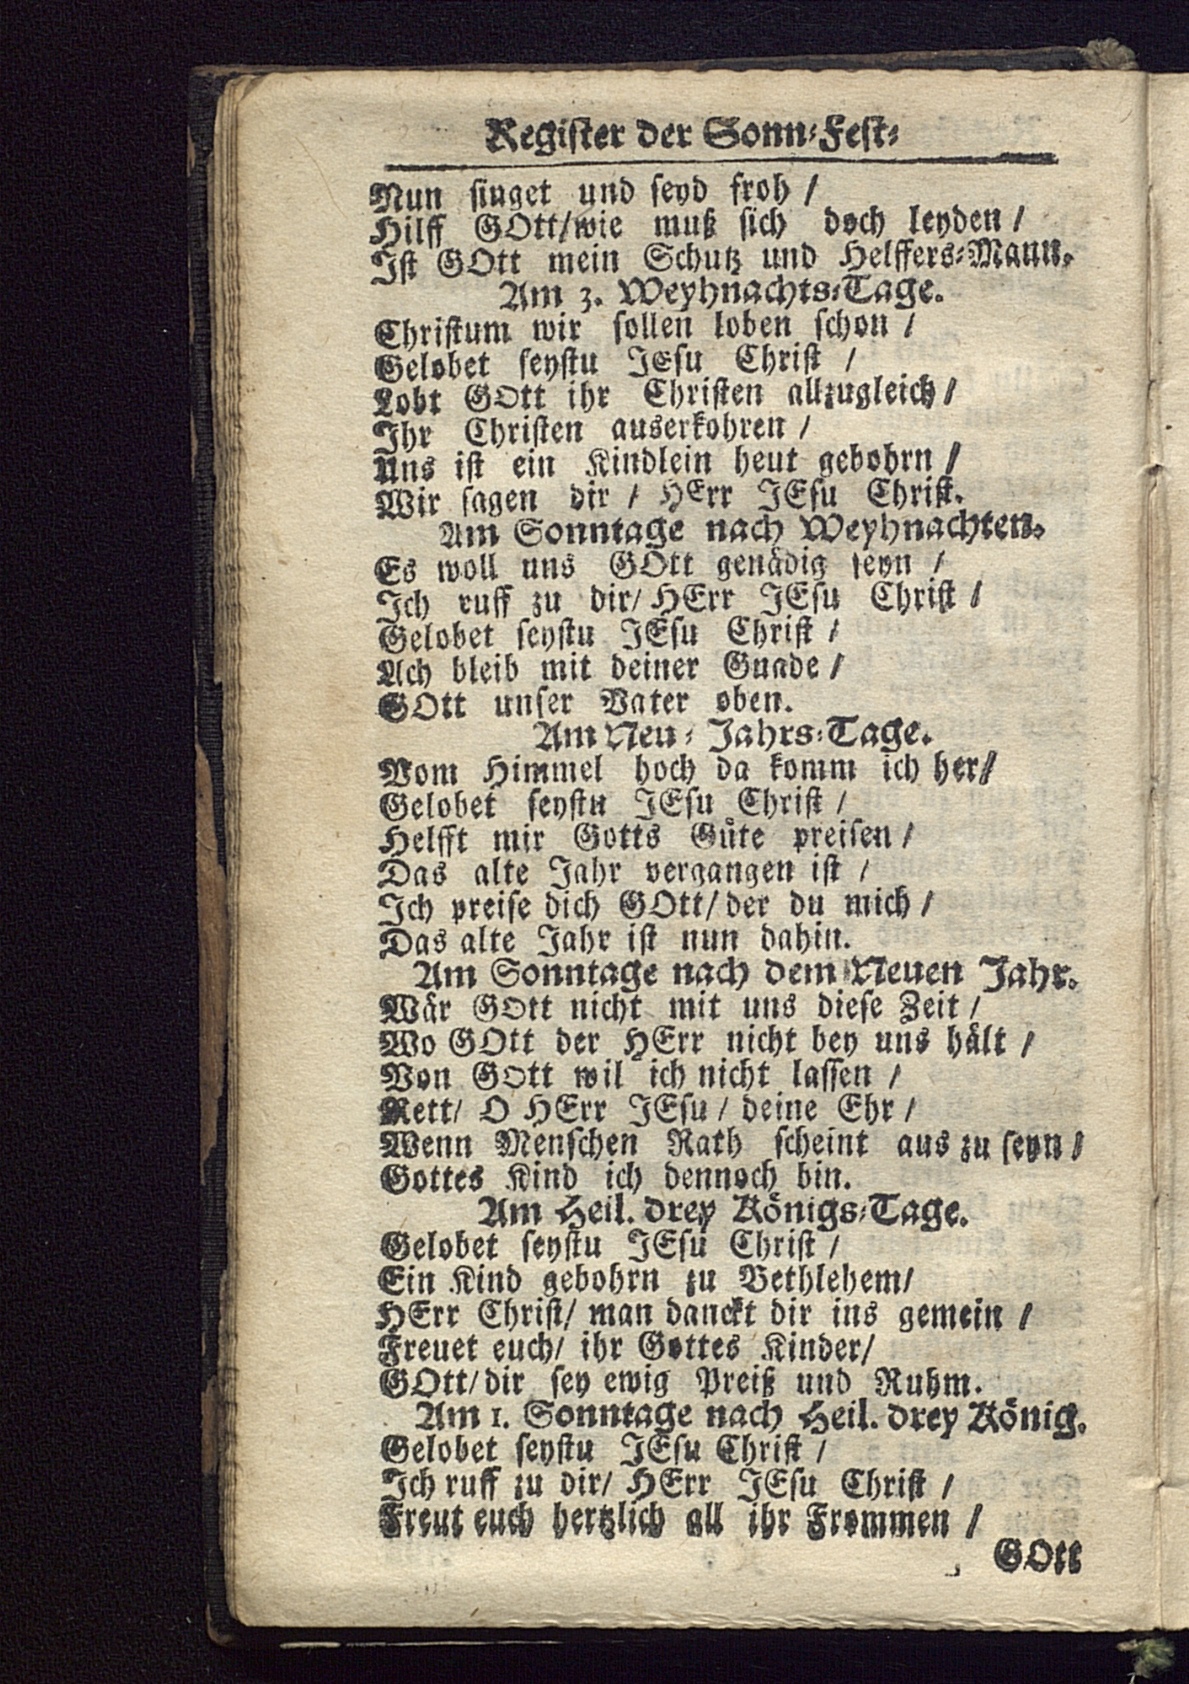 Register der Sonn-Fest-
Nun singet und seyd froh /
Hilff GOtt/wie muß sich doch leyden /
Ist GOtt mein Schutz und Helffers-Mann.
Am 3. Weyhnachts-Tage.
Christum wir sollen loben schon /
Gelobet seystu JEsu Christ /
Lobt GOtt ihr Christen allzugleich /
Ihr Christen auserkohren /
Uns ist ein Kindlein heut gebohrn /
Wir sagen dir / HErr JEsu Christ.
Am Sonntage nach Weyhnachten.
Es woll uns GOtt genädig seyn /
Ich ruff zu dir/ HErr JEsu Christ /
Gelobet seystu JEsu Christ /
Ach bleib mit deiner Gnade /
GOtt unser Vater oben.
Am Neu-Jahrs-Tage.
Vom Himmel hoch da komm ich her/
Gelobet seystu JEsu Christ /
Helfft mir Gotts Güte preisen /
Das alte Jahr vergangen ist /
Ich preise dich GOtt/ der du mich /
Das alte Jahr ist nun dahin.
Am Sonntage nach dem Neuen Jahr.
Wär GOtt nicht mit uns diese Zeit /
Wo GOtt der HErr nicht bey uns hält /
Von GOtt wil ich nicht lassen /
Rett/ O HErr JEsu / deine Ehr /
Wenn Menschen Rath scheint aus zu seyn /
Gottes Kind ich dennoch bin.
Am Heil. drey Königs-Tage.
Gelobet seystu JEsu Christ /
Ein Kind gebohrn zu Bethlehem/
HErr Christ/ man danckt dir ins gemein /
Freuet euch/ ihr Gottes Kinder/
GOtt/ dir sey ewig Preiß und Ruhm.
Am 1. Sonntage nach Heil. drey König.
Gelobet seystu JEsu Christ /
Ich ruff zu dir/ HErr JEsu Christ /
Freut euch hertzlich all ihr Frommen /
GOtt